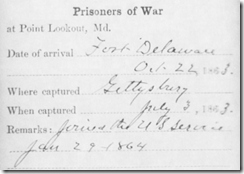 Prisoners of War
at Point Lookout, Md.
Date of arrival Fort Delaware
Oct. 22, 1863.
Where captured Gettysburg
When captured July 3, 1863
Remarks: Joined the U S Service
Jan 29-1864